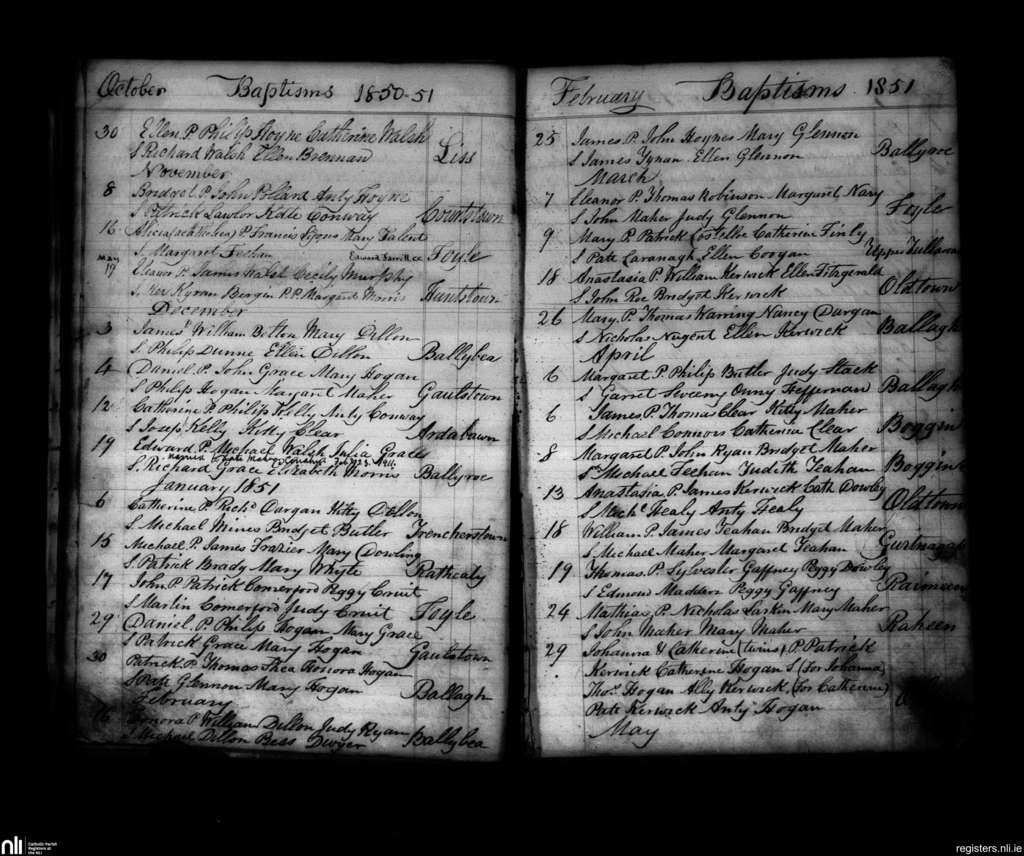 October Baptisms 1850-51
30 Ellen P Philip Hoyne Catherine Walsh
S Richard Walsh Ellen Brennan Liss
November
8 Bridget P. John Pollard Anty Hoyne
S Patrick Lawlor Kate Conway Courtstown
16 Alicia P Francis Lyons Mary Talent
S. Margaret Feehan Foyle
May 19 Eleanor P. James Walsh Cecily Murphy
S. Rev Kyran Bergin P.P. Margaret Morris Huntstown
December
3 James William Bolton Mary Dillon
S. Philip Dunne Ellen Dillon Ballybea
4 Daniel P. John Grace Mary Hogan
S Philip Hogan Margaret Maher Gaulstown
12 Catherine P. Philip Kelly Anty Conway
S Joseph Kelly Kitty Clear Ardabawn
19 Edward P. Michael Walsh Julia Grace
S. Richard Grace Elizabeth Morris Ballyroe
January 1851
6 Catherine P. Richd Dargan Kitty Dillon
S. Michael Mines Bridget Butler Trencherstown
15 Michael P. James Frazier Mary Dowling
S. Patrick Brady Mary Whyte Rathealy
17 John P Patrick Comerford Peggy Cruit
S Martin Comerford Judy Cruit Foyle
29 Daniel. P. Philip Hogan Mary Grace
S Patrick Grace Mary Hogan Gaulstown
30 Patrick P. Thomas Shea Honora Hogan
S Pate Glennon Mary Hogan Ballagh
February
16 Honora P William Dillon Judy Ryan
Michael Dillon Bess Dwyer Ballybea
February Baptisms 1851
25 James P. John Hoynes Mary Glennon
S James Tynan Ellen Glennon Ballyroe
March
7 Eleanor P. Thomas Robinson Margaret Nary
S. John Maher Judy Glennon Foyle
9 Mary P. Patrick Costelloe Catherine Finly
S Pate Cavanagh Ellen Coogan Upper Tullaroan
18 Anastasia P. William Kerwick Ellen Fitzgerald
S. John Roe Bridget Kerwick Oldtown
26 Mary. P. Thomas Warring Nancy Dargan
S Nicholas Nugent Ellen Kerwick Ballagh
April
6 Margaret P. Philip Butler Judy Stack
S Garret Sweeny Owny Heffernan Ballagh
6 James. P. Thomas Clear Kitty Maher
S Michael Connors Catherine Clear Boggin
8 Margaret P. John Ryan Bridget Maher
S. Michael Feehan Judith Feahan Boggin
13 Anastasia P. James Kerwick Cath Dowley
S Michl Healy Anty Healy Oldtown
18 William. P. James Feahan Bridget Maher
S. Michael Maher Margaret Feahan Gurtnagap
19 Thomas. P. Sylvester Gaffney Peggy Dowley
S Edmond Madden Peggy Gaffney
24 Mathias, P. Nicholas Larkin Mary Maher
S John Maher Mary Maher Raheen
29 Johanna & Catherine (twins) P. Patrick
Kerwick Catherine Hogan S. (for Johanna)
Thos. Hogan Ally Kerwick, (for Catherine)
Pate Kerwick Anty Hogan
May
nli Catholic Parish Registers at the NLI
registers.nli.ie